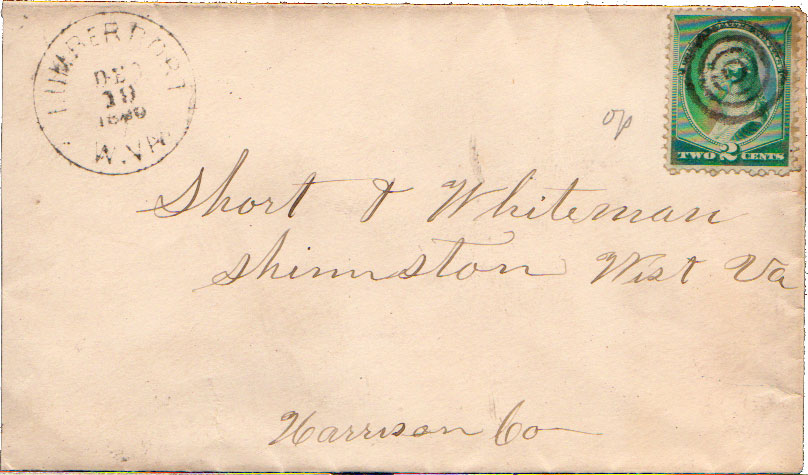 LUMBERPORT
DEC
19
1889
W.VA
op
TWO 2 CENTS
Short & Whiteman
Shinnston West Va
Harrison Co